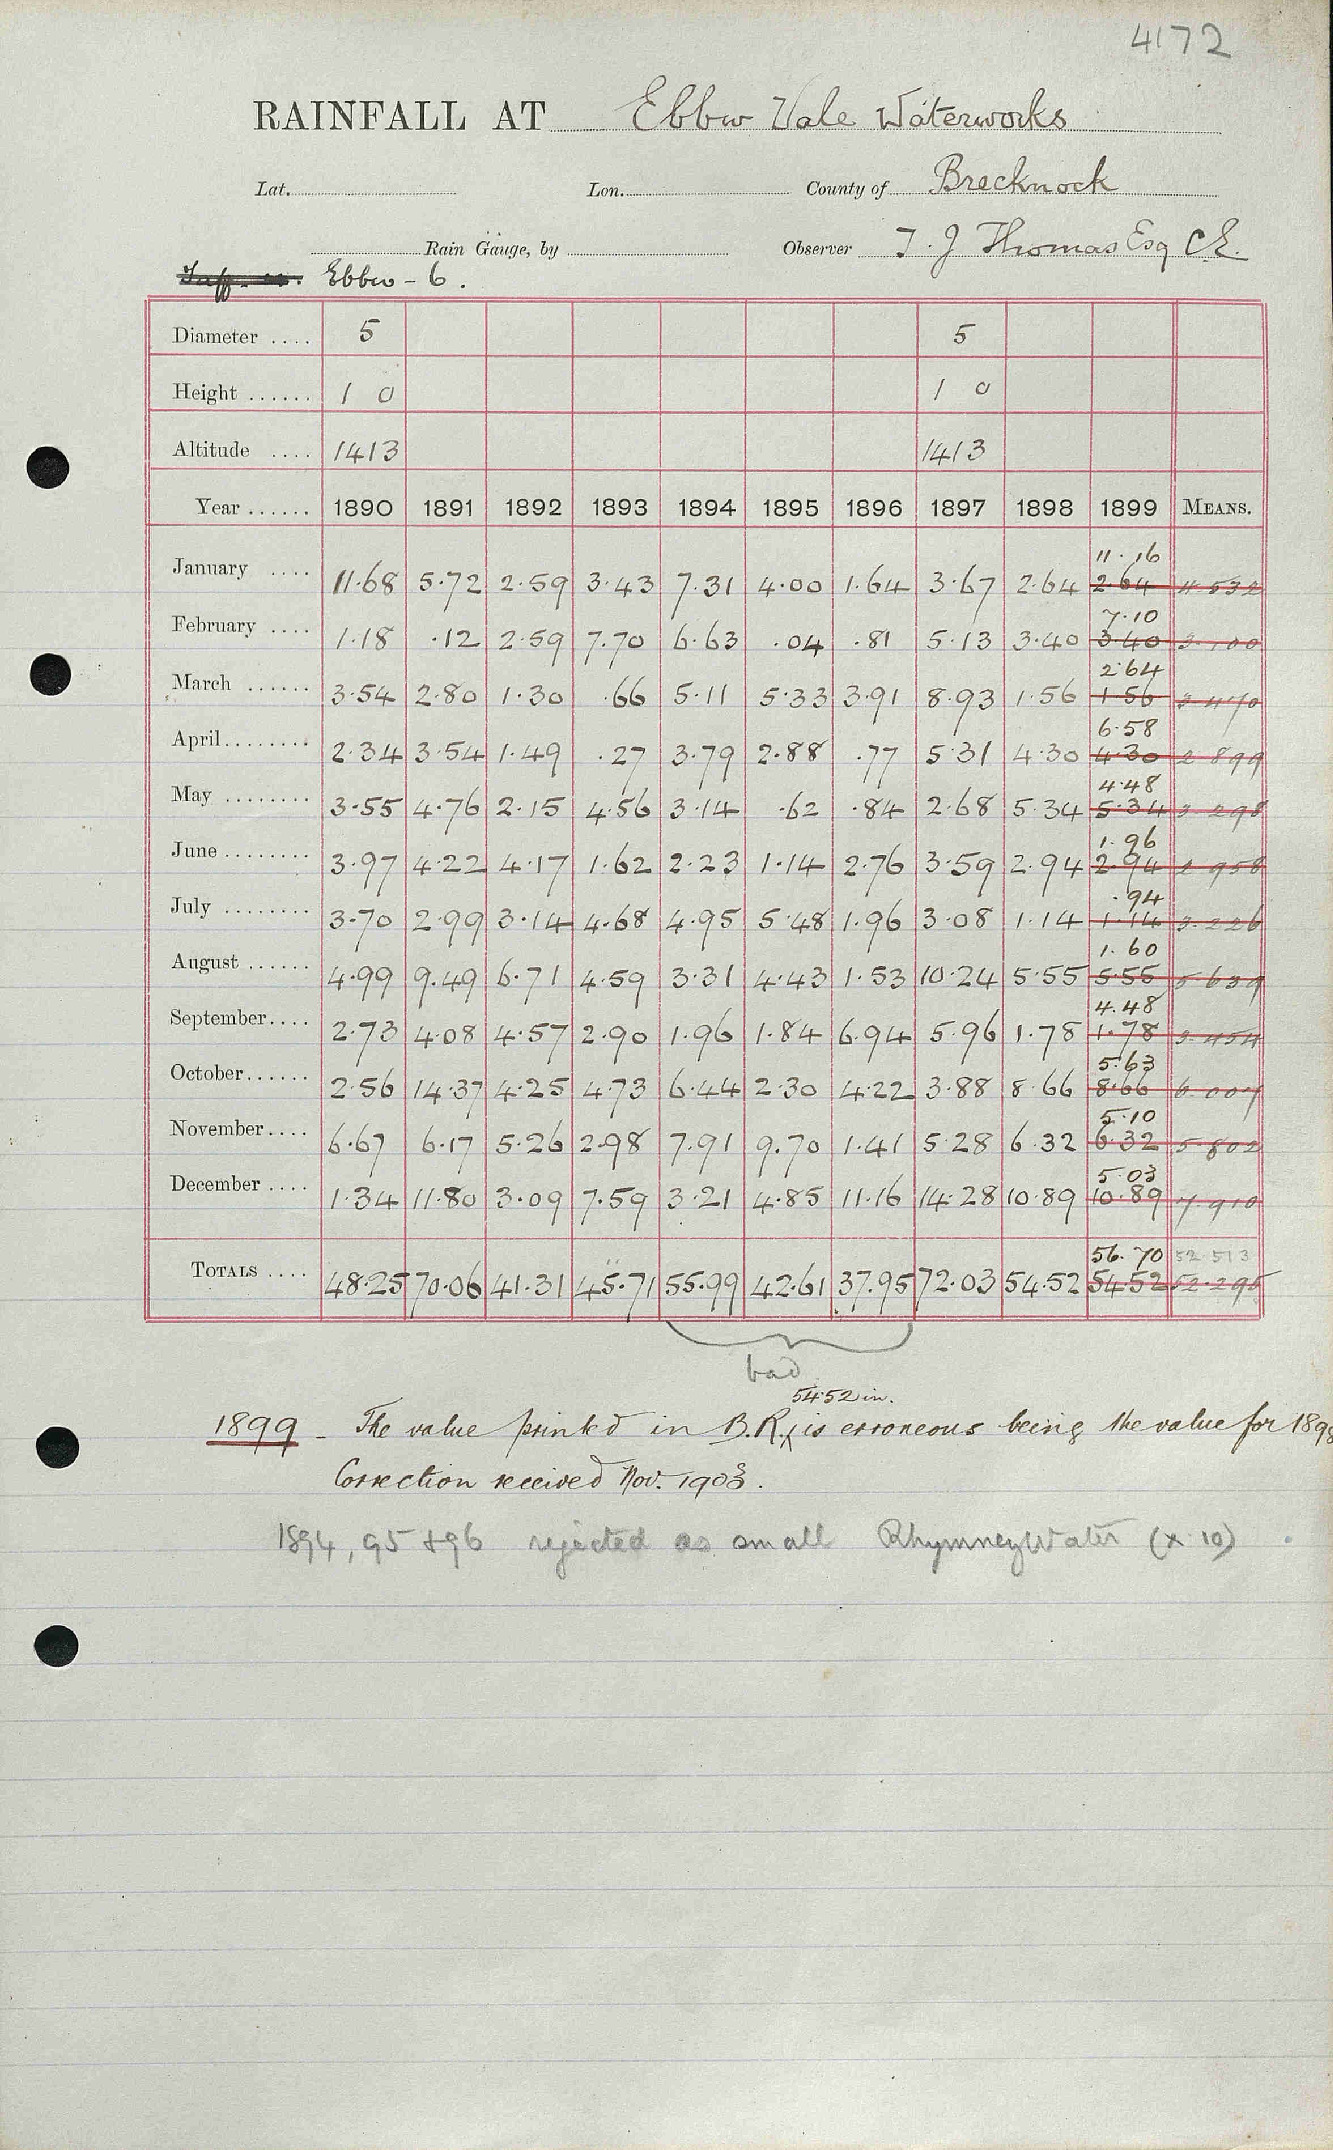 4172
RAINFALL AT Ebbw Vale Waterworks
Lat. Lon. County of Brecknock
Rain Gauge, by Observer T. J Thomas Esq C.E.
Ebbw - 6.
Diameter .... 5 5
Height ...... 1 0 1 0
Altitude .... 1413 1413
Year ...... 1890 1891 1892 1893 1894 1895 1896 1897 1898 1899 MEANS.
11.16
January .... 11.68 5.72 2.59 3.43 7.31 4.00 1.64 3.67 2.64 2.64 4.532
7.10
February .... 1.18 .12 2.59 7.70 6.63 .04 .81 5.13 3.40 3.40 3.100
2.64
March ...... 3.54 2.80 1.30 .66 5.11 5.33 3.91 8.93 1.56 1.56 3.470
6.58
April........ 2.34 3.54 1.49 .27 3.79 2.88 .77 5.31 4.30 4.30 2.899
4.48
May ........ 3.55 4.76 2.15 4.56 3.14 .62 .84 2.68 5.34 5.34 3.298
1.96
June ........ 3.97 4.22 4.17 1.62 2.23 1.14 2.76 3.59 2.94 2.94 2.958
.94
July ........ 3.70 2.99 3.14 4.68 4.95 5.48 1.96 3.08 1.14 1.14 3.226
1.60
August ...... 4.99 9.49 6.71 4.59 3.31 4.43 1.53 10.24 5.55 5.55 5.639
4.48
September.... 2.73 4.08 4.57 2.90 1.96 1.84 6.94 5.96 1.78 1.78 3.454
5.63
October...... 2.56 14.37 4.25 4.73 6.44 2.30 4.22 3.88 8.66 8.66 6.007
5.10
November.... 6.67 6.17 5.26 2.98 7.91 9.70 1.41 5.28 6.32 6.32 5.802
5.03
December .... 1.34 11.80 3.09 7.59 3.21 4.85 11.16 14.28 10.89 10.89 7.910
56.70 52.513
TOTALS .... 48.25 70.06 41.31 45.71 55.99 42.61 37.95 72.03 54.52 54.52 52.295
bad
54.52 in.
1899 - The value printed in B.R. is erroneous being the value for 1898
Correction received Nov. 1903.
1894, 95 + 96 rejected as small Rhymney Water (x 10)